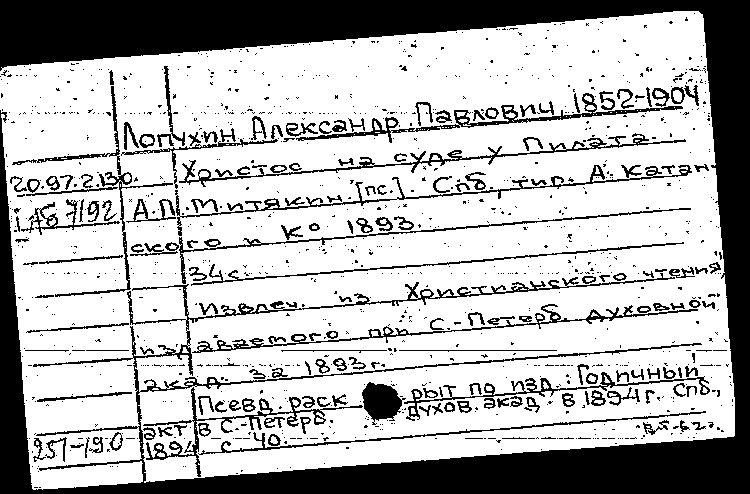 Лопухин, Александр Павлович, 1852-1904
20.97.2.130. Христос на суде у Пилата.
А.П. Митякин [пс.]. Спб., тип. А. Катан-
ского и К°, 1893.
34 с.
"Извлеч. из "Христианского чтения",
издаваемого при С.-Петерб. духовной
акад. за 1893 г."
Псевд. раскрыт по изд.: Годичный
акт в С.-Петерб. духов. акад. в 1894 г. Спб.,
1894 с. 40.
251-19.0